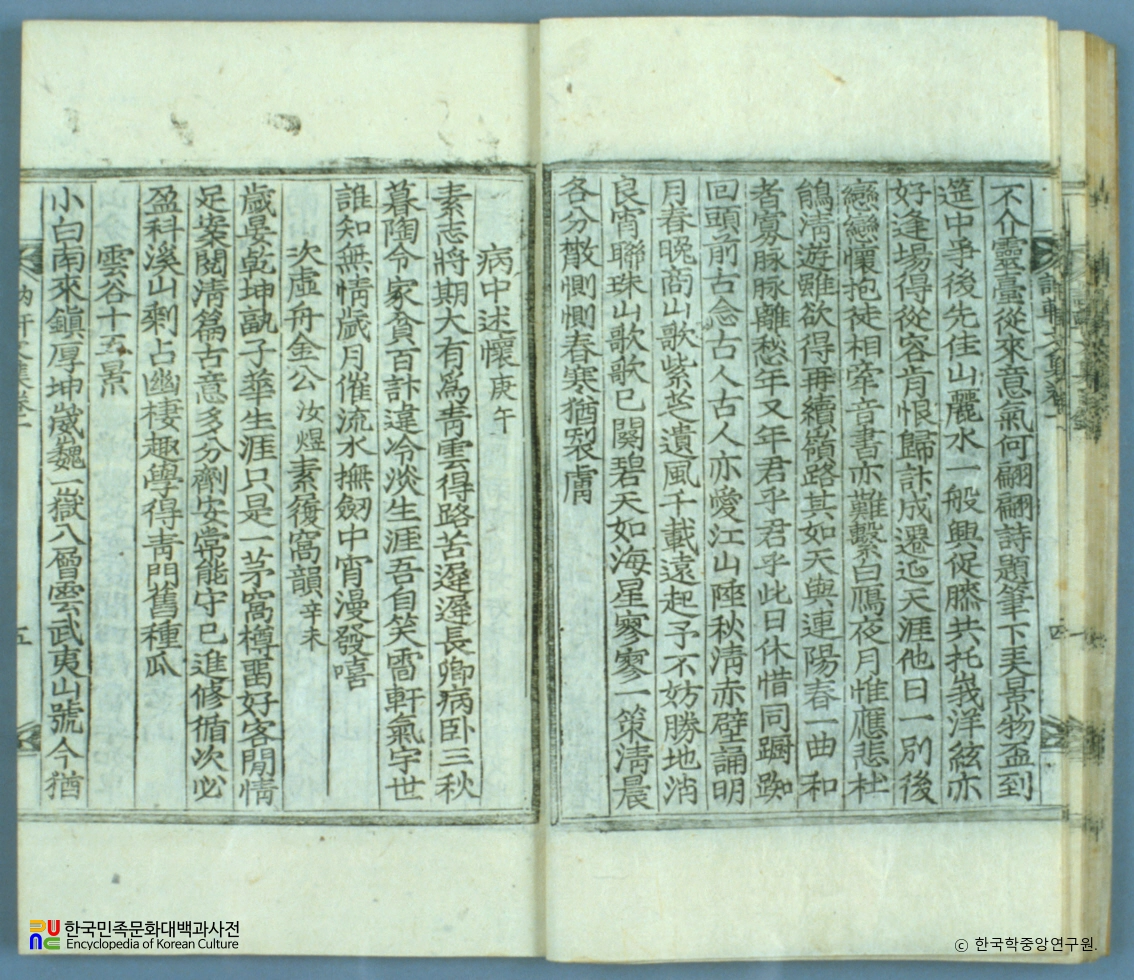 不介靈臺從來意氣何翩翩詩題筆下美景物盃到
筵中爭後先佳山麗水一般興促膝共托峩洋絃亦
好逢場得從容肯恨歸計成遷延天涯他日一別後
戀戀懷抱徒相牽音書亦難繫白鴈夜月惟應悲杜
鵑淸遊雖欲得再續嶺路其如天與連陽春一曲和
者寡脉脉離愁年又年君乎君乎此日休惜同踟躕
回頭前古念古人古人亦愛江山秋淸赤壁誦明
月春晩商山歌紫芝遺風千載遠起予不妨勝地消
良宵聯珠山歌歌已闋碧天如海星寥寥一策淸晨
各分散惻惻春寒猶裂膚
病中述懷 庚午
素志將期大有爲靑雲得路苦遲遲長卿病卧三秋
暮陶令家貧百計違冷淡生涯吾自笑軒氣宇世
誰知無情歲月催流水撫劒中宵漫發嘻
次虛舟金公 汝煜 素履窩韻 辛未
歲晏乾坤子華生涯只是一茅窩樽留好客閒情
足案閱淸篇古意多分劑安常能守已進修循次必
盈科溪山剩占幽棲趣學得靑門舊種瓜
雲谷十五景
小白南來鎭厚坤巍一嶽八層雲武夷山號今猶
訥軒文集卷一
五
한국민족문화대백과사전
Encyclopedia of Korean Culture
© 한국학중앙연구원.